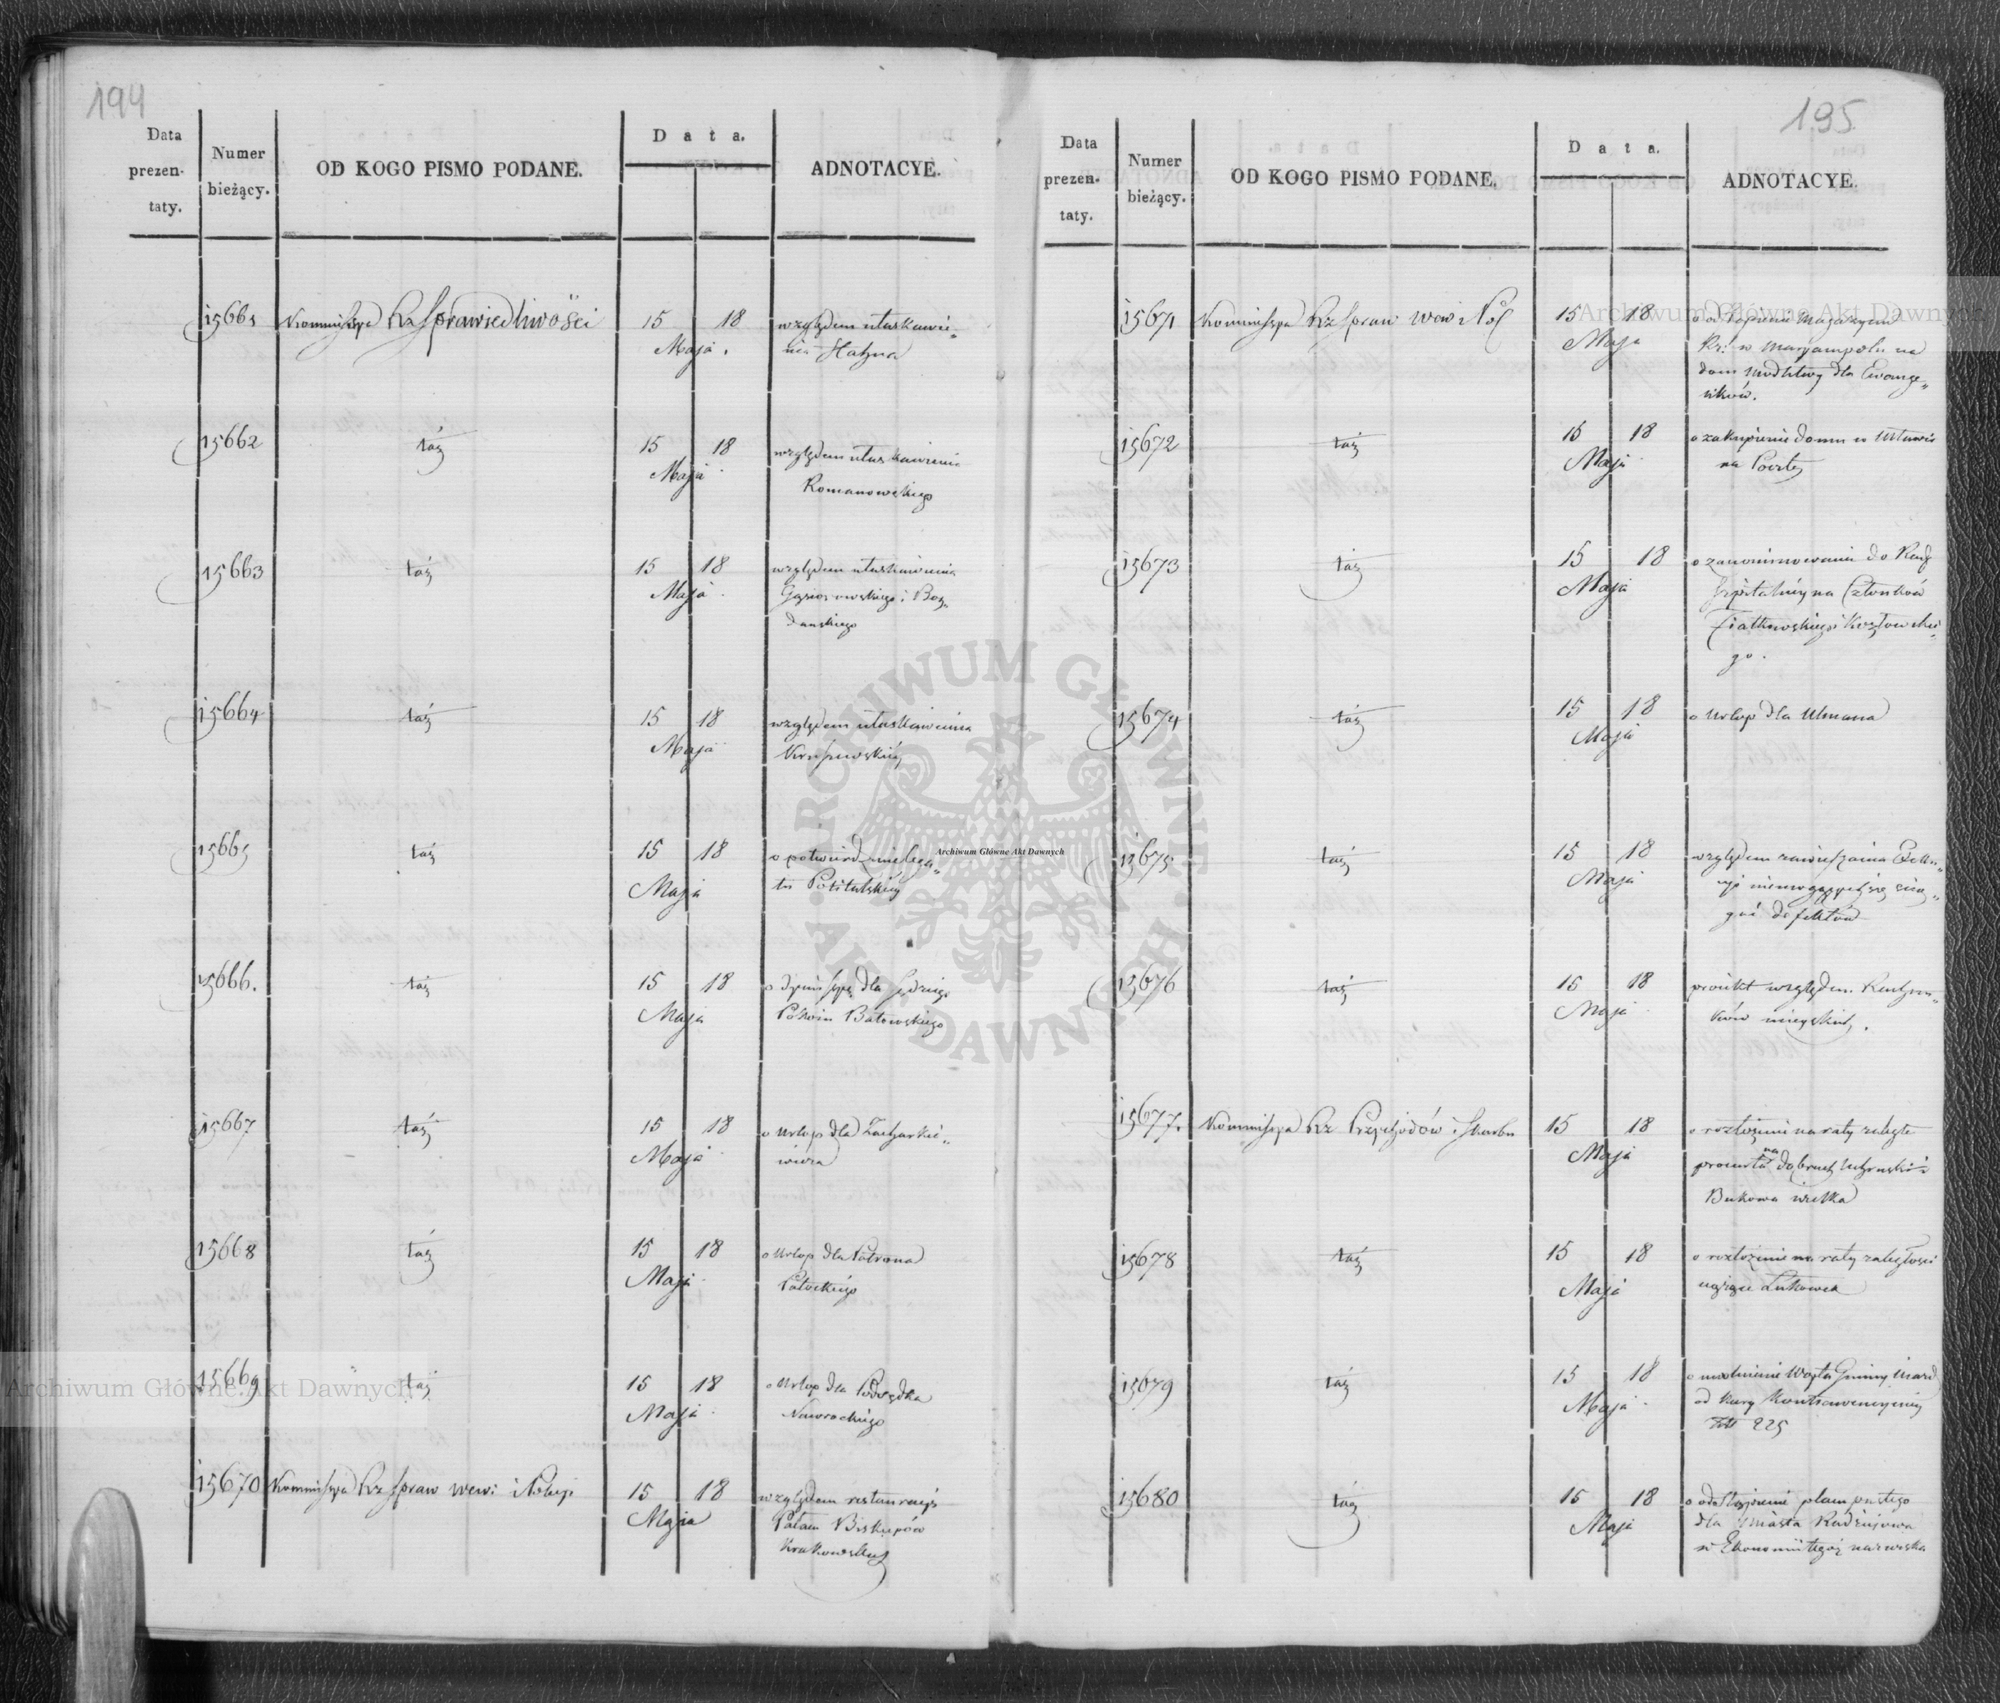 194
Data prezen- taty.
Numer bieżący.
OD KOGO PISMO PODANE.
Data.
ADNOTACYE.
15661 Kommissya Rz Sprawiedliwości 15 18 Maja. względem ułaskawie-
nia
15662 táż 15 18 Maja względem ułaskawienia
Romanowskiego
15663 táż 15 18 Maja względem ułaskawienia
Gąsiorowskiego i Bog-
dańskiego
15664 táż 15 18 Maja względem ułaskawienia
15665 táż 15 18 Maja o potwierdzenie lega-
tu
15666. táż 15 18 Maja o dymissyę dla Sędziego
Pokoiu Batowskiego
15667 táż 15 18 Maja o Urlop dla Zacharkie-
wicza
15668 táż 15 18 Maja o Urlop dla Patrona
Potockiego
15669 táż 15 18 Maja o Urlop dla Podsędka
Nawrockiego
15670 Kommissya Rz Spraw wew: i Policyi 15 18 Maja względem restauracyi
Pałacu Biskupów
Krakowskich
195
Data prezen- taty.
Numer bieżący.
OD KOGO PISMO PODANE.
Data.
ADNOTACYE.
15671 Kommissya Rz Spraw wew i Pol 15 18 Maja o odstąpienie Magazynu
Rz: w Maryampolu na
dom modlitwy dla Ewange-
lików.
15672 táż 15 18 Maja o zakupienie domu w Mławie
na Pocztę
15673 táż 15 18 Maja o zanominowanie do Rady
Szpitalnéy na Członków
Fiałkowskiego i Kozłowskie-
go.
15674 táż 15 18 Maja o Urlop dla Ulmana
15675 táż 15 18 Maja względem zawieszenia
się ścią-
gać defektów
15676 táż 15 18 Maja proiekt względem
ków mieyskich.
15677. Kommissya Rz Przychodów i Skarbu 15 18 Maja o rozłożenie na raty zaległe
procenta na dobrach
Bukowa wielka
15678 táż 15 18 Maja o rozłożenie na raty zaległości
Łukowca
15679 táż 15 18 Maja o uwolnienie Wóyta Gminy
od kary kontrawencyinéy
225
15680 táż 15 18 Maja o odstąpienie placu pustego
dla miasta Radziejowa
w Ekonomii tegoż nazwiska
Archiwum Główne Akt Dawnych
Archiwum Główne Akt Dawnych
Archiwum Główne Akt Dawnych
ARCHIWUM GŁÓWNE AKT DAWNYCH